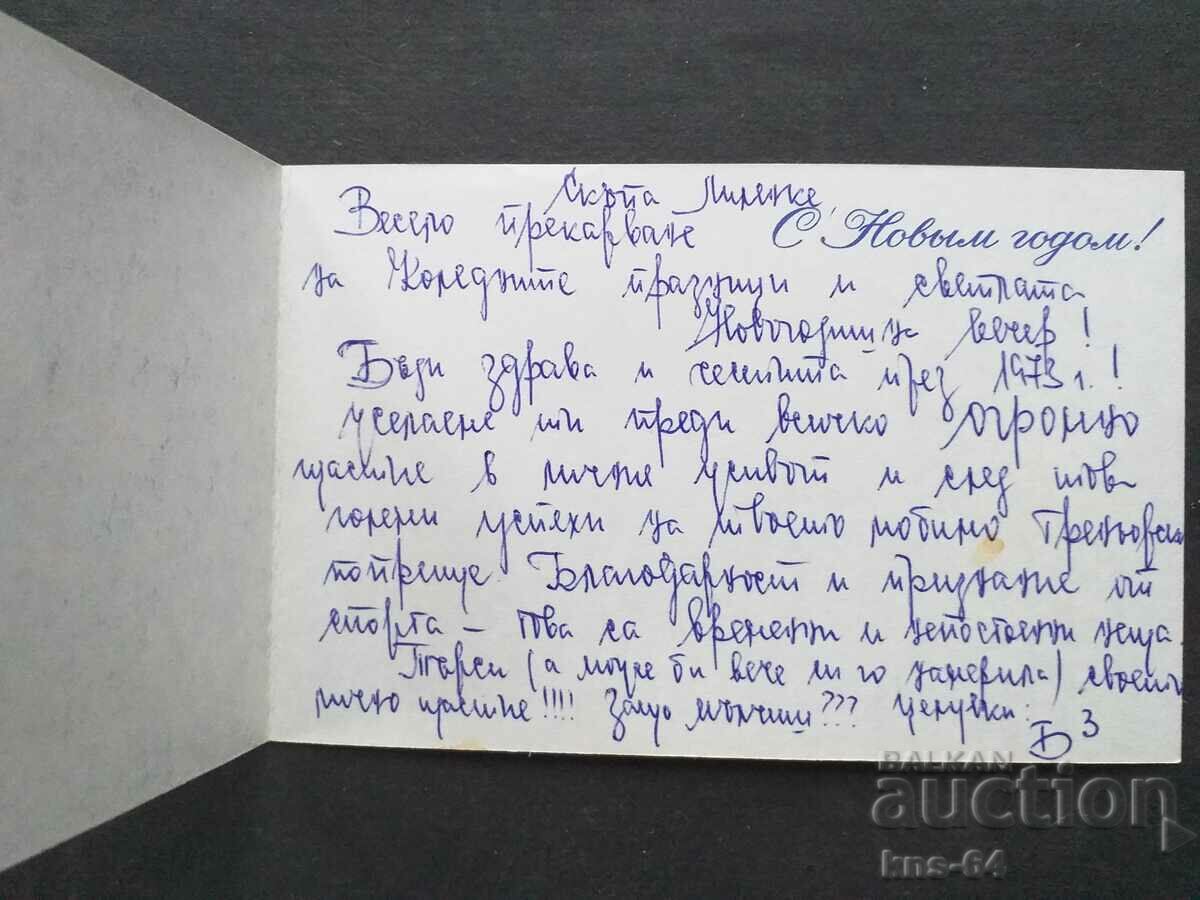 Скъпа Миленке,
Весело прекарване
С Новым годом!
на Коледните празници и светлата
Новогодишна вечер!
Бъди здрава и честита през 1973 г.!
Желаене ти преди всичко огромно
щастие в личния живот и след това
големи успехи на твоето любимо треньорско
поприще. Благодарност и признание от
спорта – това са временни и непостоянни неща.
Търси (а може би вече си го намерила) своето
лично щастие!!!! Защо мълчиш??? Целувки:
Б З
BALKAN
auction
kns-64